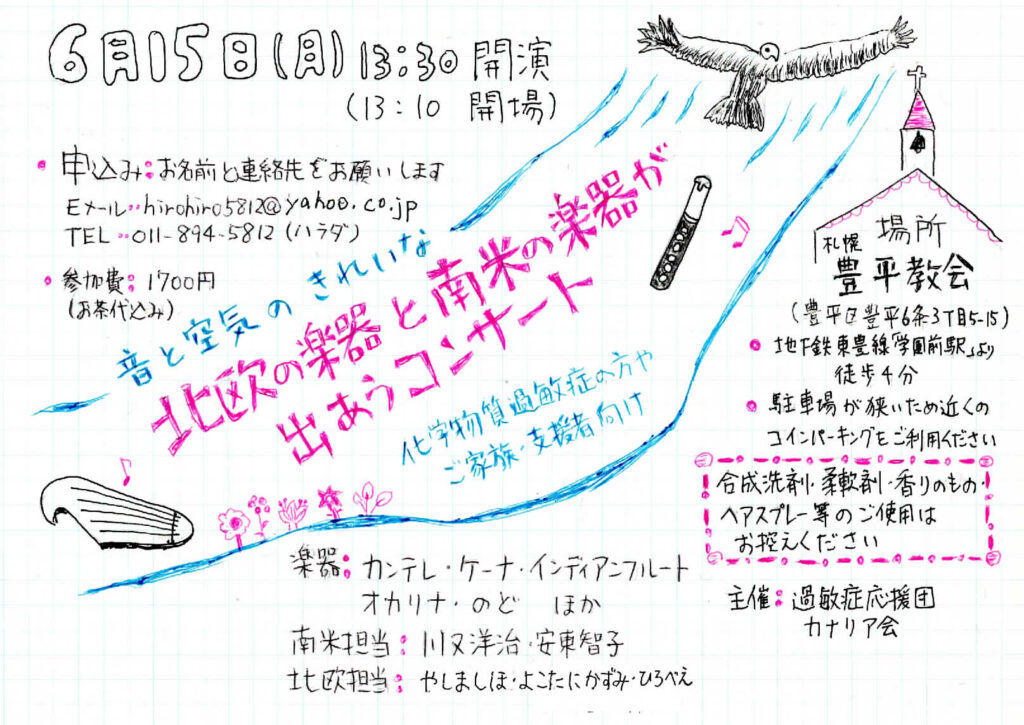 6月15日(月)13:30 開演
(13:10 開場)
・申込み:お名前と連絡先をお願いします
Eメール:hirohiro5812@yahoo.co.jp
TEL:011-894-5812(ハラダ)
・参加費:1700円
(お茶代込み)
音と空気のきれいな
北欧の楽器と南米の楽器が
出あうコンサート
化学物質過敏症の方や
ご家族・支援者向け
場所
札幌 豊平教会
(豊平区豊平6条3丁目5-15)
・地下鉄東豊線「学園前駅」より
徒歩4分
・駐車場が狭いため近くの
コインパーキングをご利用ください
合成洗剤・柔軟剤・香りのもの・
ヘアスプレー等のご使用は
お控えください
主催:過敏症応援団
カナリア会
楽器:カンテレ・ケーナ・インディアンフルート
オカリナ・のど ほか
南米担当:川又洋治・安東智子
北欧担当:やしましほ・よこたにかずみ・ひろべえ